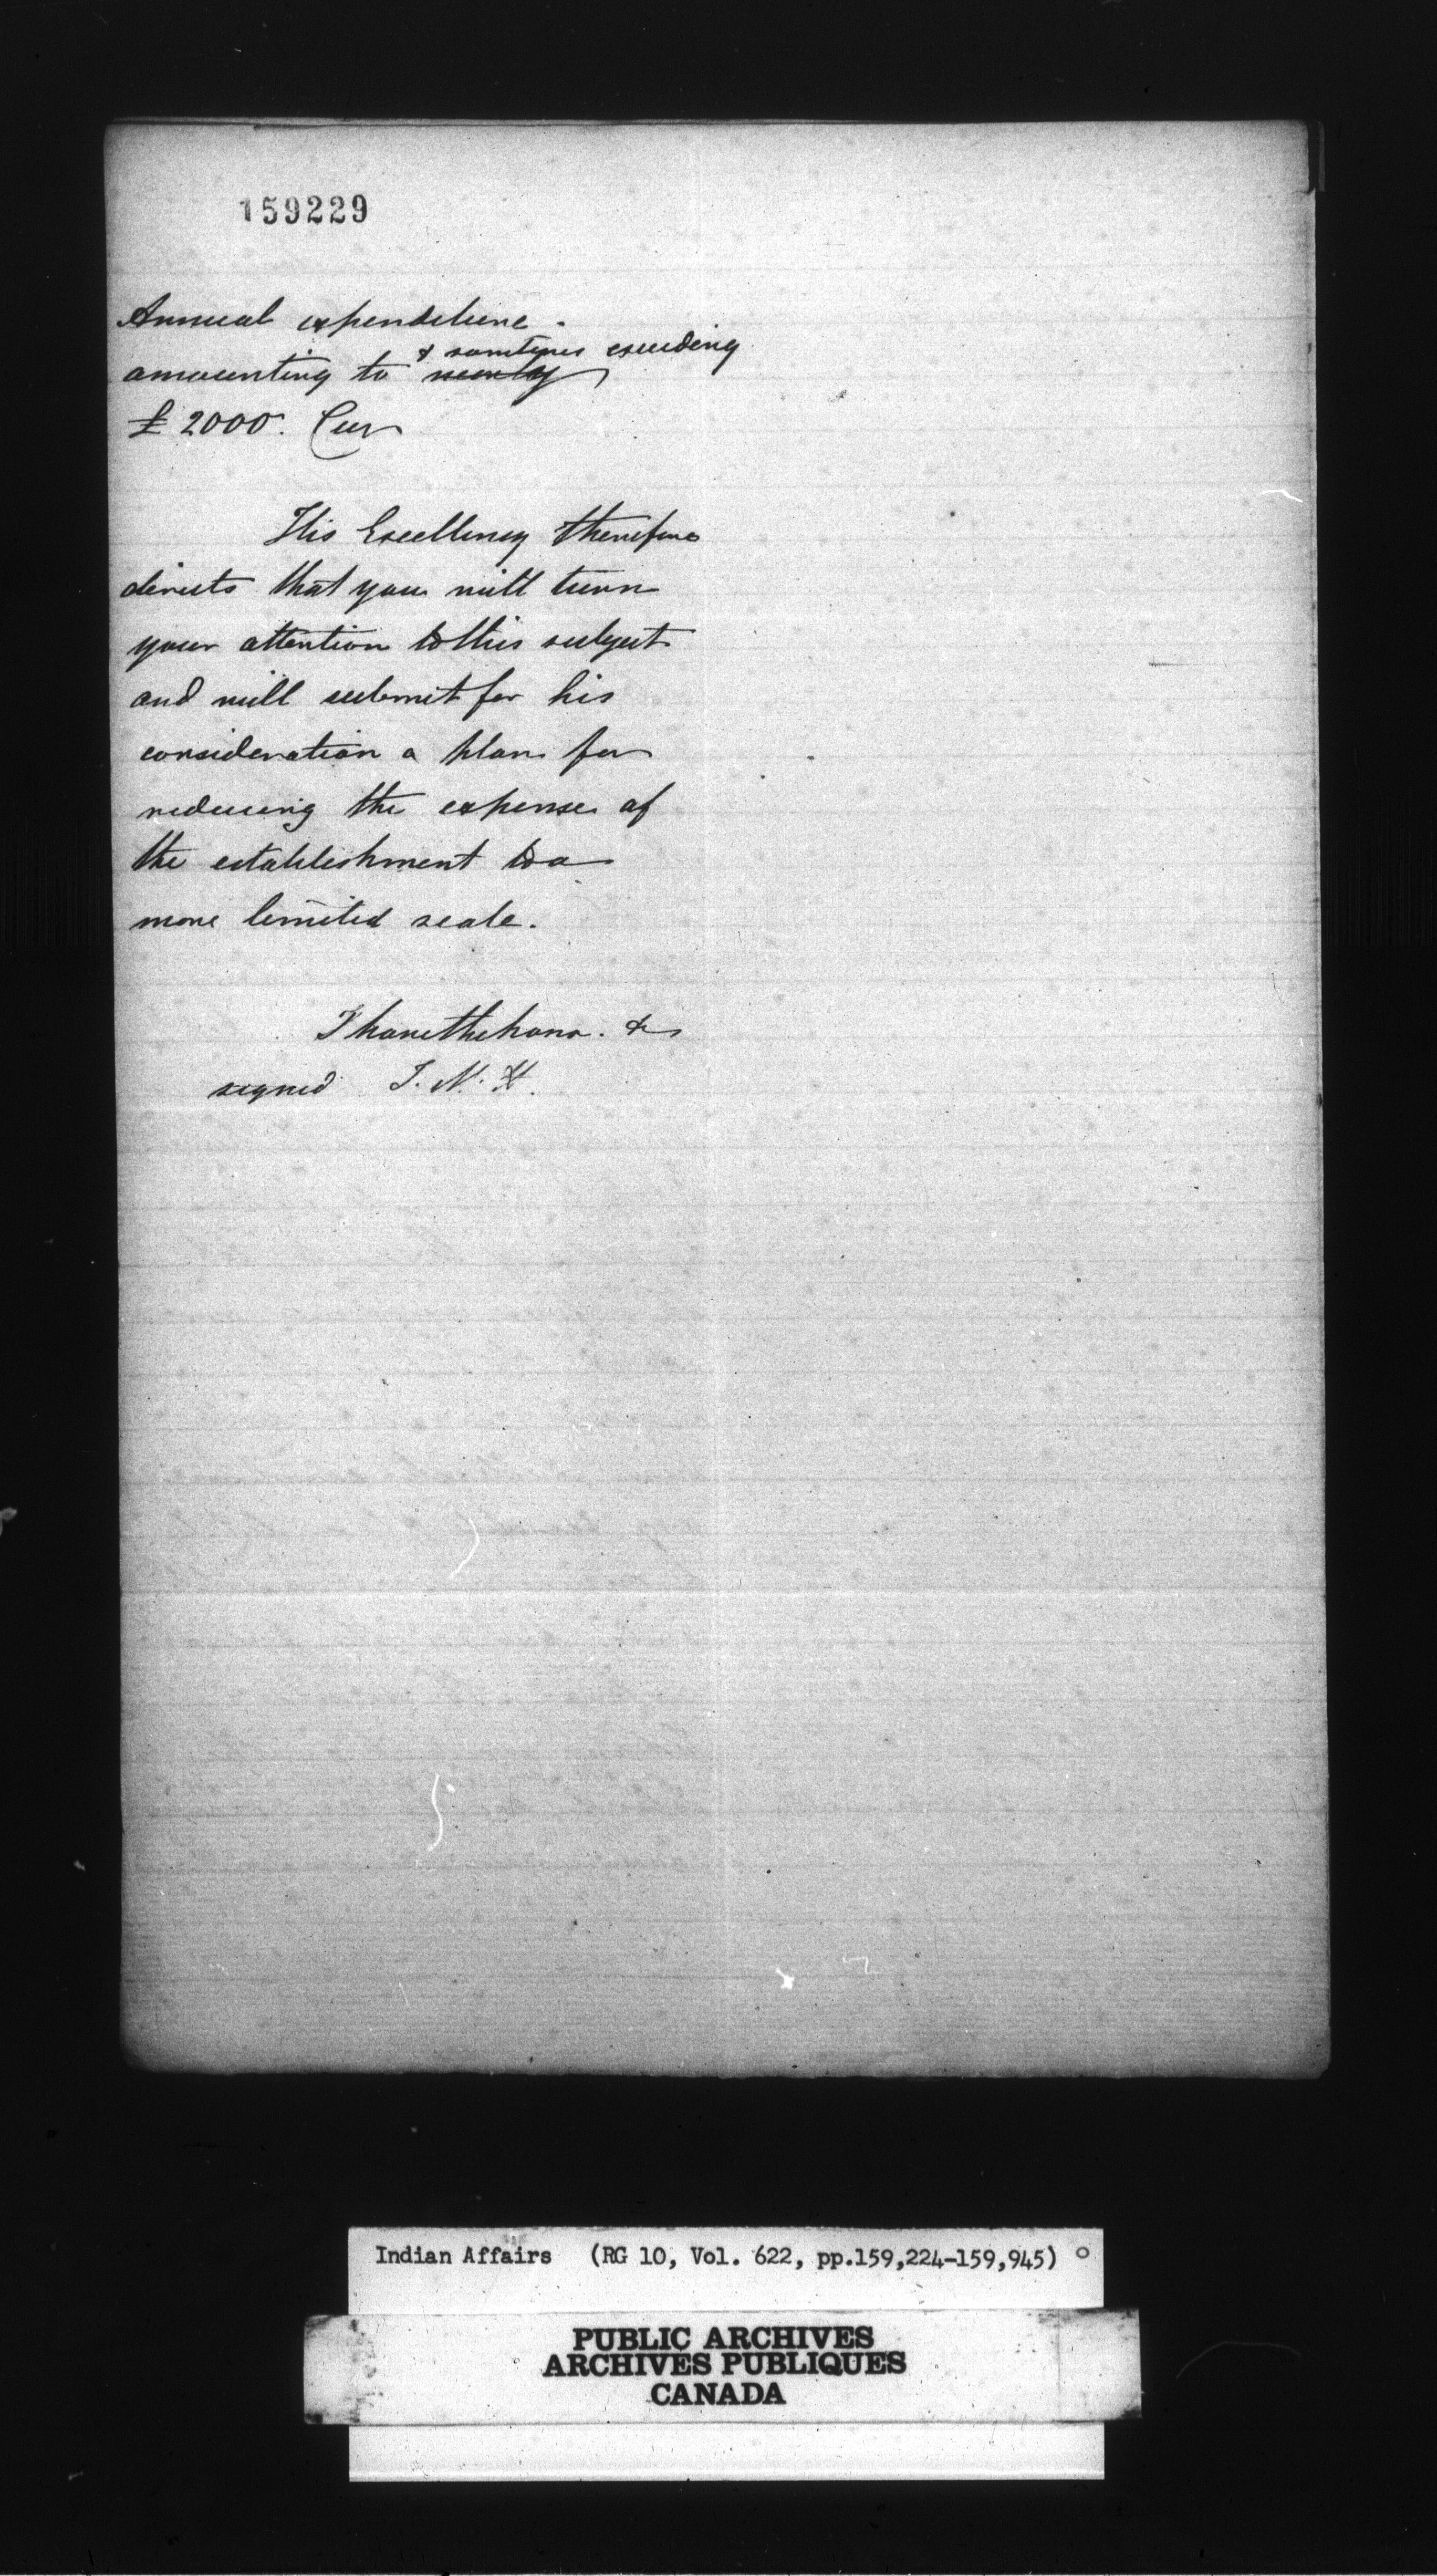 159229
Annual expenditure.
& sometimes exceeding
amounting to nearly
£2000. Cur
His Excellency therefore
directs that you will turn
your attention to this subject
and will submit for his
consideration a plan for
reducing the expense of
the establishment to a
more limited scale.
I have the honor. &c
signed J. N. H.
Indian Affairs (RG 10, Vol. 622, pp.159,224-159,945)
PUBLIC ARCHIVES
ARCHIVES PUBLIQUES
CANADA